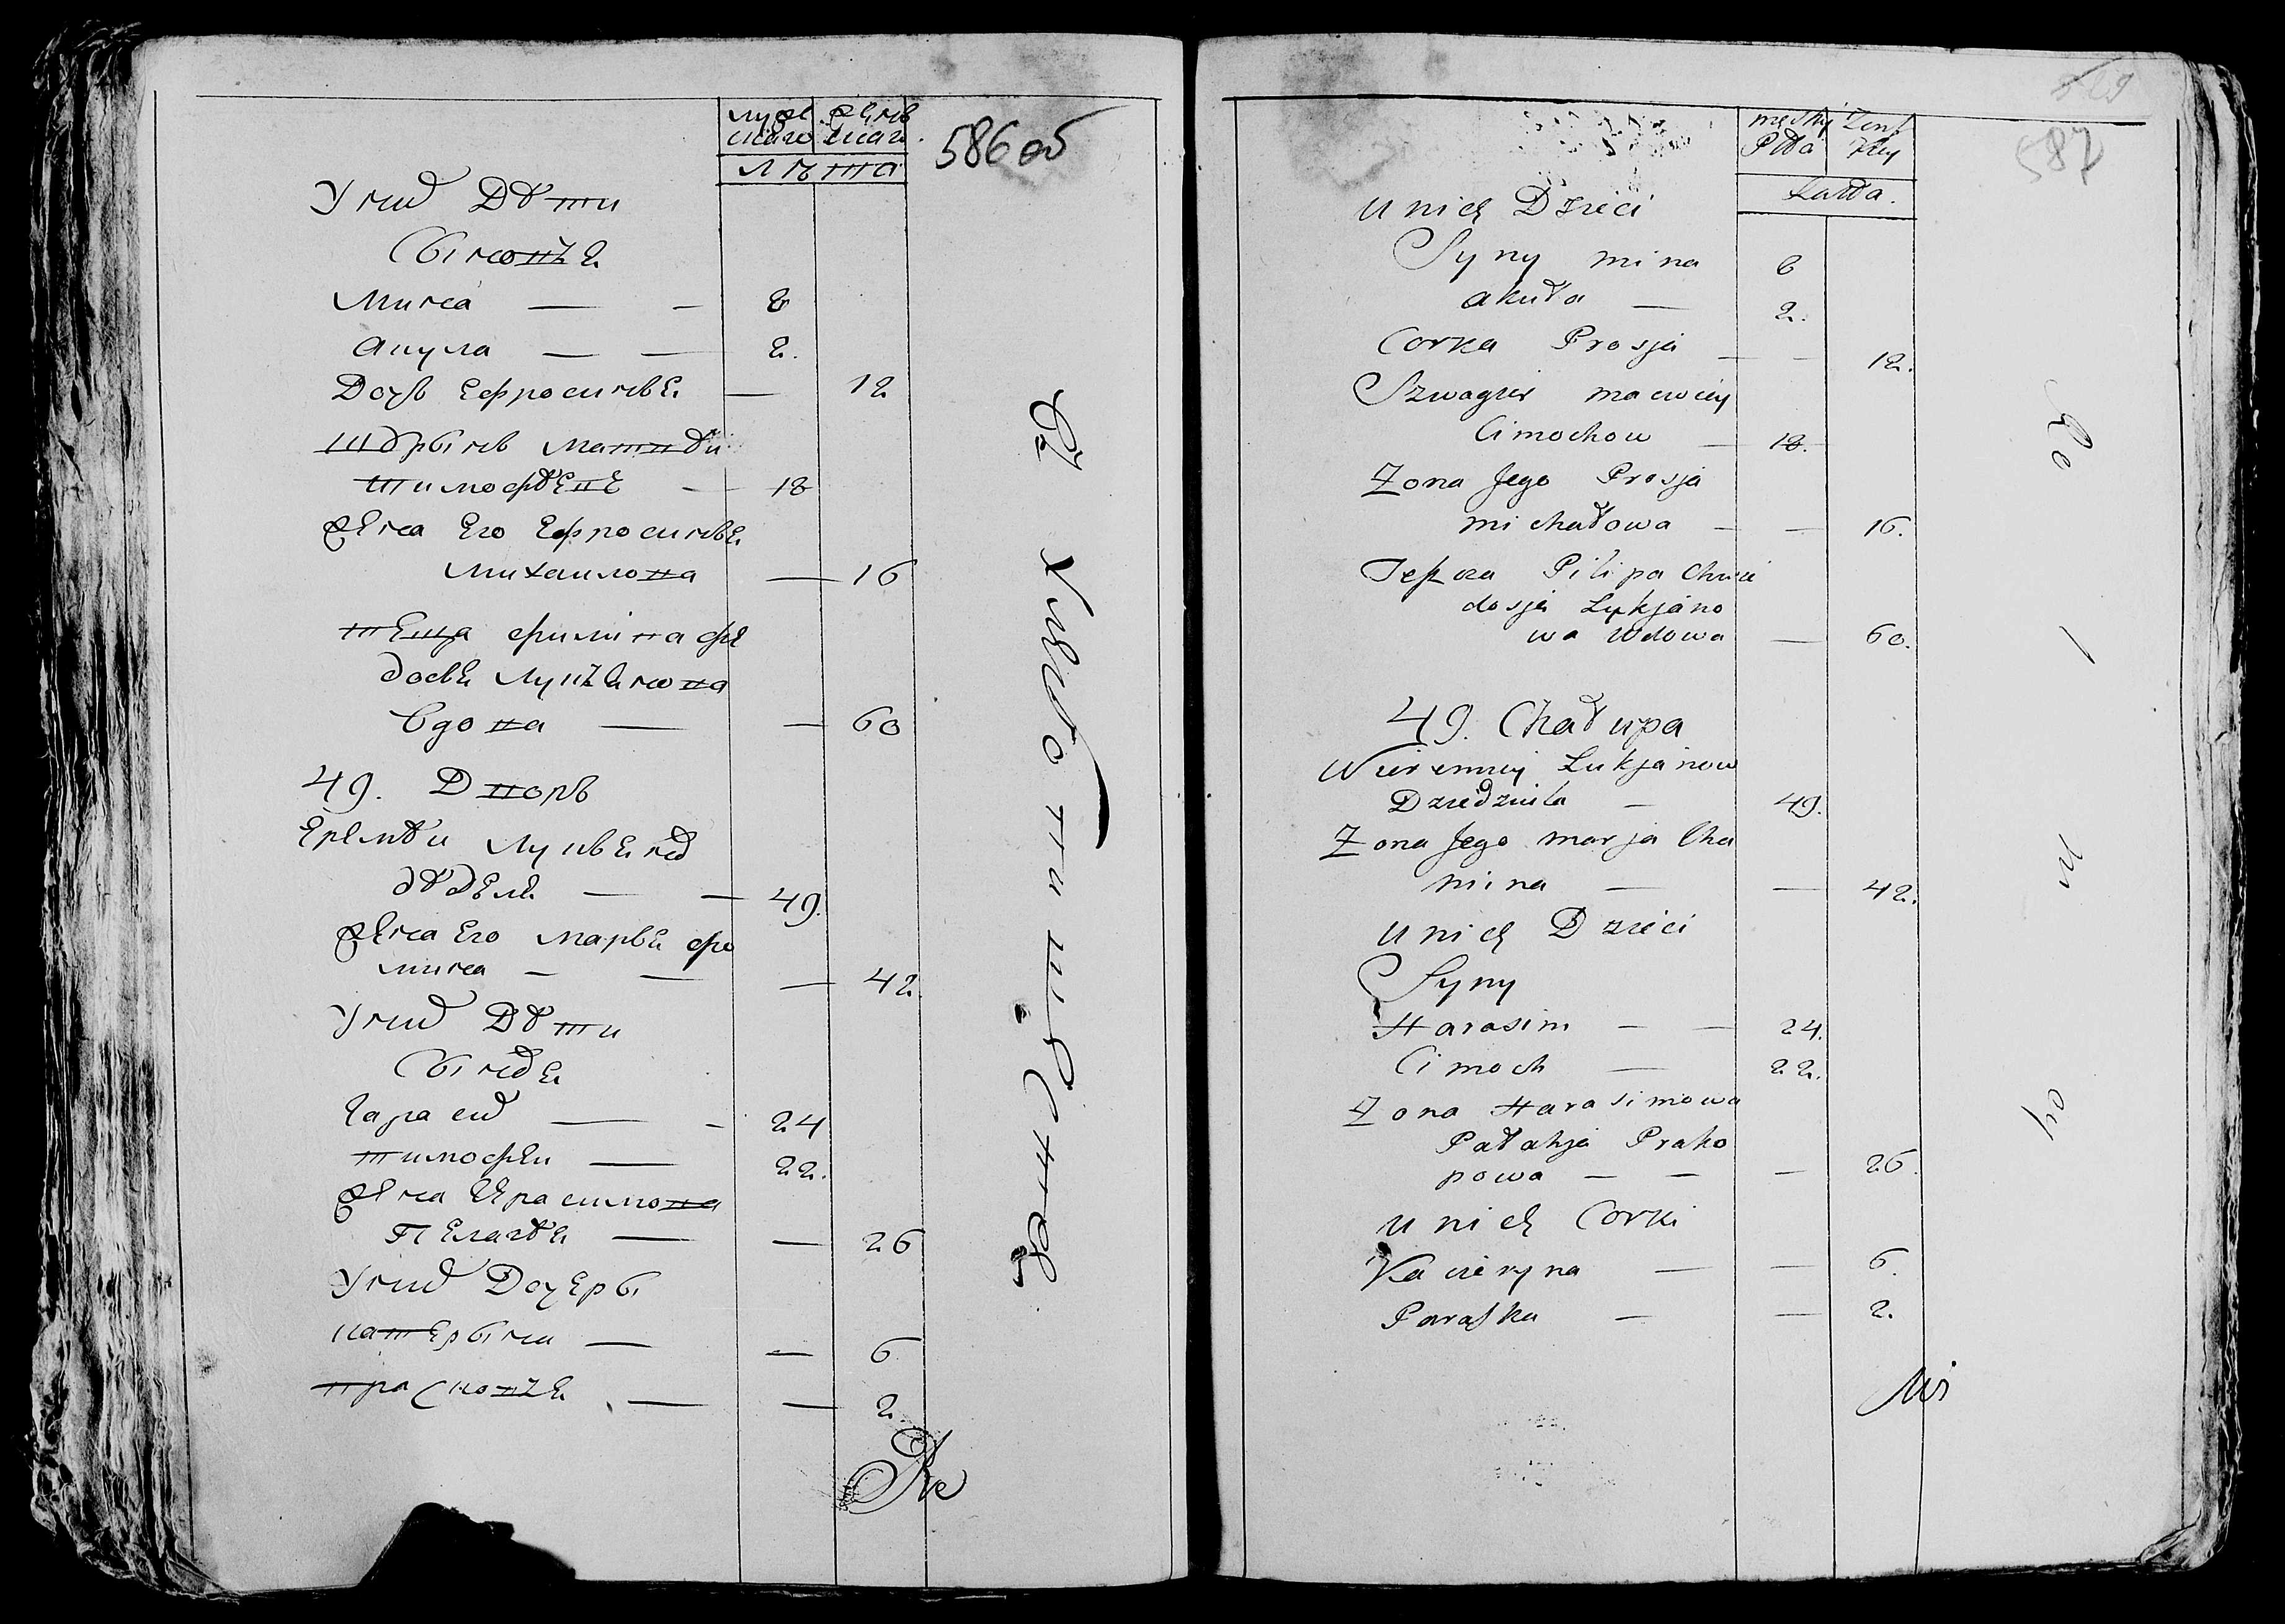 муже женс
скаго скаго
лѣта
586 об
У нихъ Дѣти
Сыновья
Мина — — 6
Акула — — 2.
Дочь Ефросинья — 12
Шурынъ Матвѣй
Тимофѣевъ — 18
жена его Ефросинья
Михаилова — 16
теща Филипа Фе
досья Лукьянова
Вдова — — 60
49. Дворъ
Еремѣй Лукьяновъ
дѣдель — — 49.
жена его Марья Фо
мина — — — 42.
У нихъ Дѣти
Сыновья
Гарасимъ — - 24
Тимофей — 22.
жена Гарасимова
Пелагѣя — — 26
У нихъ Дочеры
Катерына — — 6
Прасковья — — 2.
męskiej Żens
Płda kiej
Latta.
587
U nich Dzieci
Syny Mina 6
Akuła — 2.
Corka Prosja — - 12.
Szwagier Maciej
Cimochow — 18.
Zona Jego Prosja
Michałowa — — 16.
Teszcza Pilipa Chwie
dosja Łukjano
wa Wdowa — 60.
49. Chałupa
Wieremiej Łukjanow
Dziedziula — 49.
Zona Jego Marja Cho
mina — — 42.
U nich Dzieci
Syny
Harasim — — 24.
Cimoch — 22.
Zona Harasimowa
Pałahja Prako
powa — — — 26.
U nich Corki
Kacieryna — — 6.
Paraska — — 2.